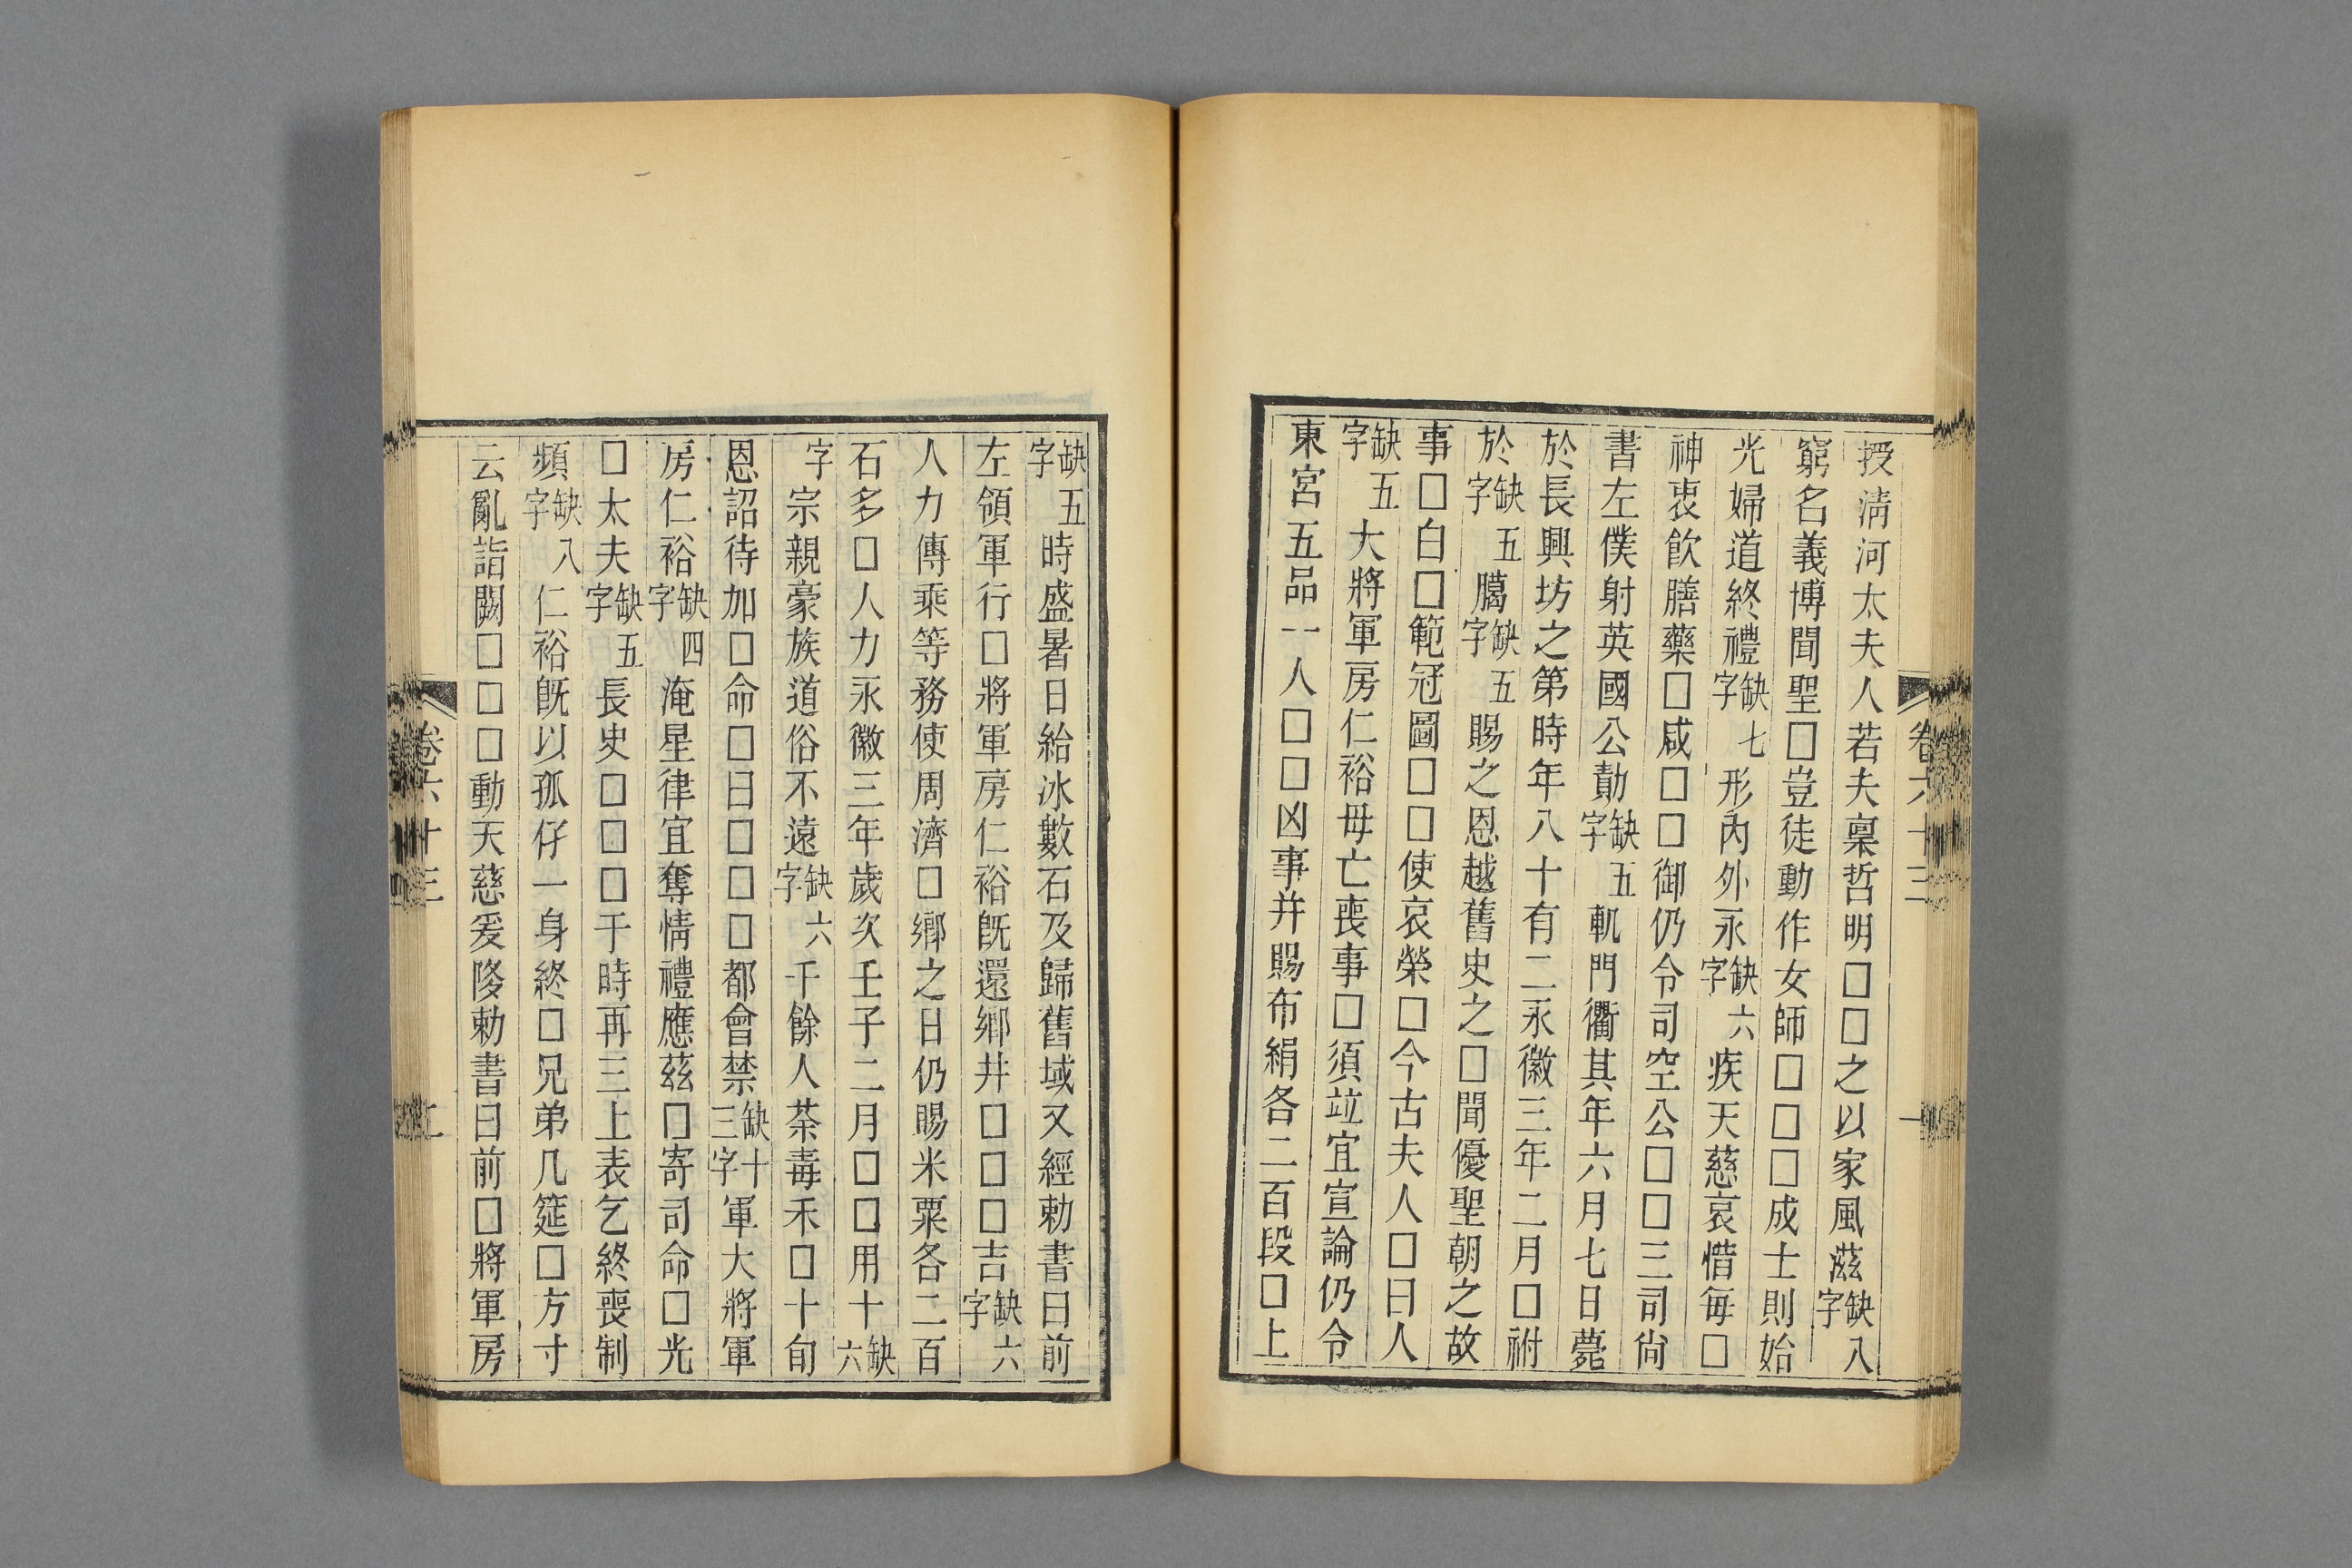 授淸河太夫人若夫稟哲明□□之以家風滋缺八字
窮名義博聞聖□豈徒動作女師□□□成士則始
光婦道終禮缺七字形內外永缺六字疾天慈哀惜每□
神衷飮膳藥□咸□□御仍令司空公□□三司尙
書左僕射英國公勣缺五字軌門衢其年六月七日薨
於長興坊之第時年八十有二永徽三年二月□祔
於缺五字臈缺五字賜之恩越舊史之□聞優聖朝之故
事□白□範冠圖□□使哀榮□今古夫人□曰人
缺五字大將軍房仁裕母亡喪事□須竝宜宣論仍令
東宮五品一人□□凶事幷賜布絹各二百段□上
卷六十三
一
缺五字時盛暑日給冰數石及歸舊域又經勅書曰前
左領軍行□將軍房仁裕旣還鄉井□□□吉缺六字
人力傳乘等務使周濟□鄉之日仍賜米粟各二百
石多□人力永徽三年歲次壬子二月□□用十缺六
字宗親豪族道俗不遠缺六字千餘人荼毒禾□十旬
恩詔待加□命□曰□□□都會禁缺十三字軍大將軍
房仁裕缺四字淹星律宜奪情禮應茲□寄司命□光
□太夫缺五字長史□□□于時再三上表乞終喪制
頻缺八字仁裕旣以孤仔一身終□兄弟几筵□方寸
云亂詣闕□□□動天慈爰降勅書曰前□將軍房
卷六十三
二